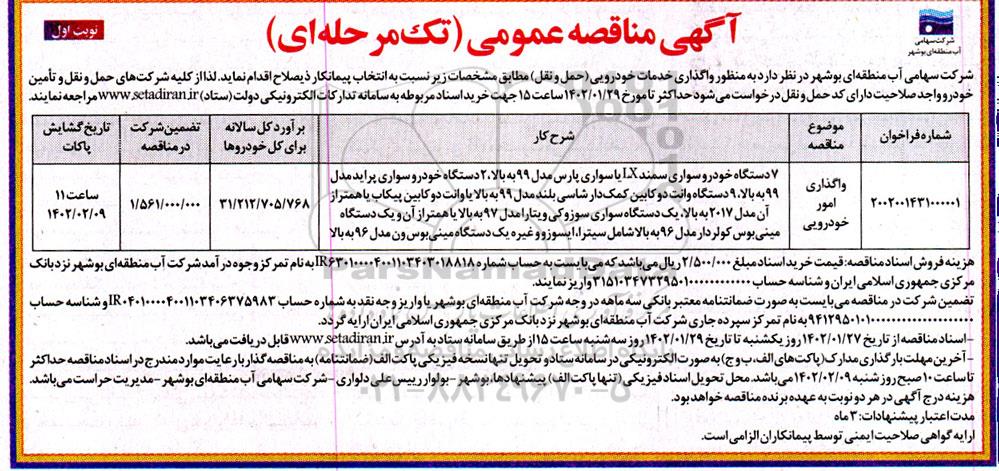 شرکت سهامی
آب منطقه‌ای بوشهر
آگهی مناقصه عمومی (تک‌مرحله‌ای)
نوبت اول
شرکت سهامی آب منطقه‌ای بوشهر در نظر دارد به منظور واگذاری خدمات خودرویی (حمل و نقل) مطابق مشخصات زیر نسبت به انتخاب پیمانکار ذیصلاح اقدام نماید. لذا از کلیه شرکت‌های حمل و نقل و تأمین
خودرو واجد صلاحیت دارای کد حمل و نقل درخواست می‌شود حداکثر تا مورخ ۱۴۰۲/۰۱/۲۹ ساعت ۱۵ جهت خرید اسناد مربوطه به سامانه تدارکات الکترونیکی دولت (ستاد) www.setadiran.ir مراجعه نمایند.
شماره فراخوان
موضوع مناقصه
شرح کار
برآورد کل سالانه برای کل خودروها
تضمین شرکت در مناقصه
تاریخ گشایش پاکات
۲۰۰۲۰۰۱۴۳۱۰۰۰۰۰۱
واگذاری امور خودرویی
۷ دستگاه خودرو سواری سمند LX یا سواری پارس مدل ۹۹ به بالا، ۲ دستگاه خودرو سواری پراید مدل
۹۹ به بالا، ۹ دستگاه وانت دو کابین کمک‌دار شاسی بلند مدل ۹۹ به بالا یا وانت دو کابین پیکاپ یا همتراز
آن مدل ۲۰۱۷ به بالا، یک دستگاه سواری سوزوکی ویتارا مدل ۹۷ به بالا یا همتراز آن و یک دستگاه
مینی‌بوس کولردار مدل ۹۶ به بالا شامل سیترا، ایسوزو و غیره یک دستگاه مینی‌بوس ون مدل ۹۶ به بالا
۳۱/۲۱۲/۷۰۵/۷۶۸
۱/۵۶۱/۰۰۰/۰۰۰
ساعت ۱۱
۱۴۰۲/۰۲/۰۹
هزینه فروش اسناد مناقصه: قیمت خرید اسناد مبلغ ۲/۵۰۰/۰۰۰ ریال می‌باشد که می‌بایست به حساب شماره IR۶۳۰۱۰۰۰۰۴۰۰۱۱۰۳۴۰۳۰۱۸۸۱۸ به نام تمرکز وجوه درآمد شرکت آب منطقه‌ای بوشهر نزد بانک
مرکزی جمهوری اسلامی ایران و شناسه حساب واریز نمایند.
تضمین شرکت در مناقصه می‌بایست به صورت ضمانتنامه معتبر بانکی سه ماهه در وجه شرکت آب منطقه‌ای بوشهر یا واریز وجه نقد به شماره حساب IR۰۴۰۱۰۰۰۰۴۰۰۱۱۰۳۴۰۶۳۷۵۹۸۳ و شناسه حساب
به نام تمرکز سپرده جاری شرکت آب منطقه‌ای بوشهر نزد بانک مرکزی جمهوری اسلامی ایران ارایه گردد.
-اسناد مناقصه از تاریخ ۱۴۰۲/۰۱/۲۷ روز یکشنبه تا تاریخ ۱۴۰۲/۰۱/۲۹ روز سه شنبه ساعت ۱۵ از طریق سامانه ستاد به آدرس www.setadiran.ir قابل دریافت می‌باشد.
-آخرین مهلت بارگذاری مدارک (پاکت‌های الف، ب و ج) به صورت الکترونیکی در سامانه ستاد و تحویل تنها نسخه فیزیکی پاکت الف (ضمانتنامه) به مناقصه گذار با رعایت موارد مندرج در اسناد مناقصه حداکثر
تا ساعت ۱۰ صبح روز شنبه ۱۴۰۲/۰۲/۰۹ می‌باشد. محل تحویل اسناد فیزیکی (تنها پاکت الف) پیشنهادها، بوشهر - بولوار رییس علی دلواری - شرکت سهامی آب منطقه‌ای بوشهر - مدیریت حراست می‌باشد.
هزینه درج آگهی در هر دو نوبت به عهده برنده مناقصه خواهد بود.
مدت اعتبار پیشنهادات: ۳ ماه
ارایه گواهی صلاحیت ایمنی توسط پیمانکاران الزامی است.
ParsNamadData
۰۲۱-۸۸۳۴۹۶۷۰-۵